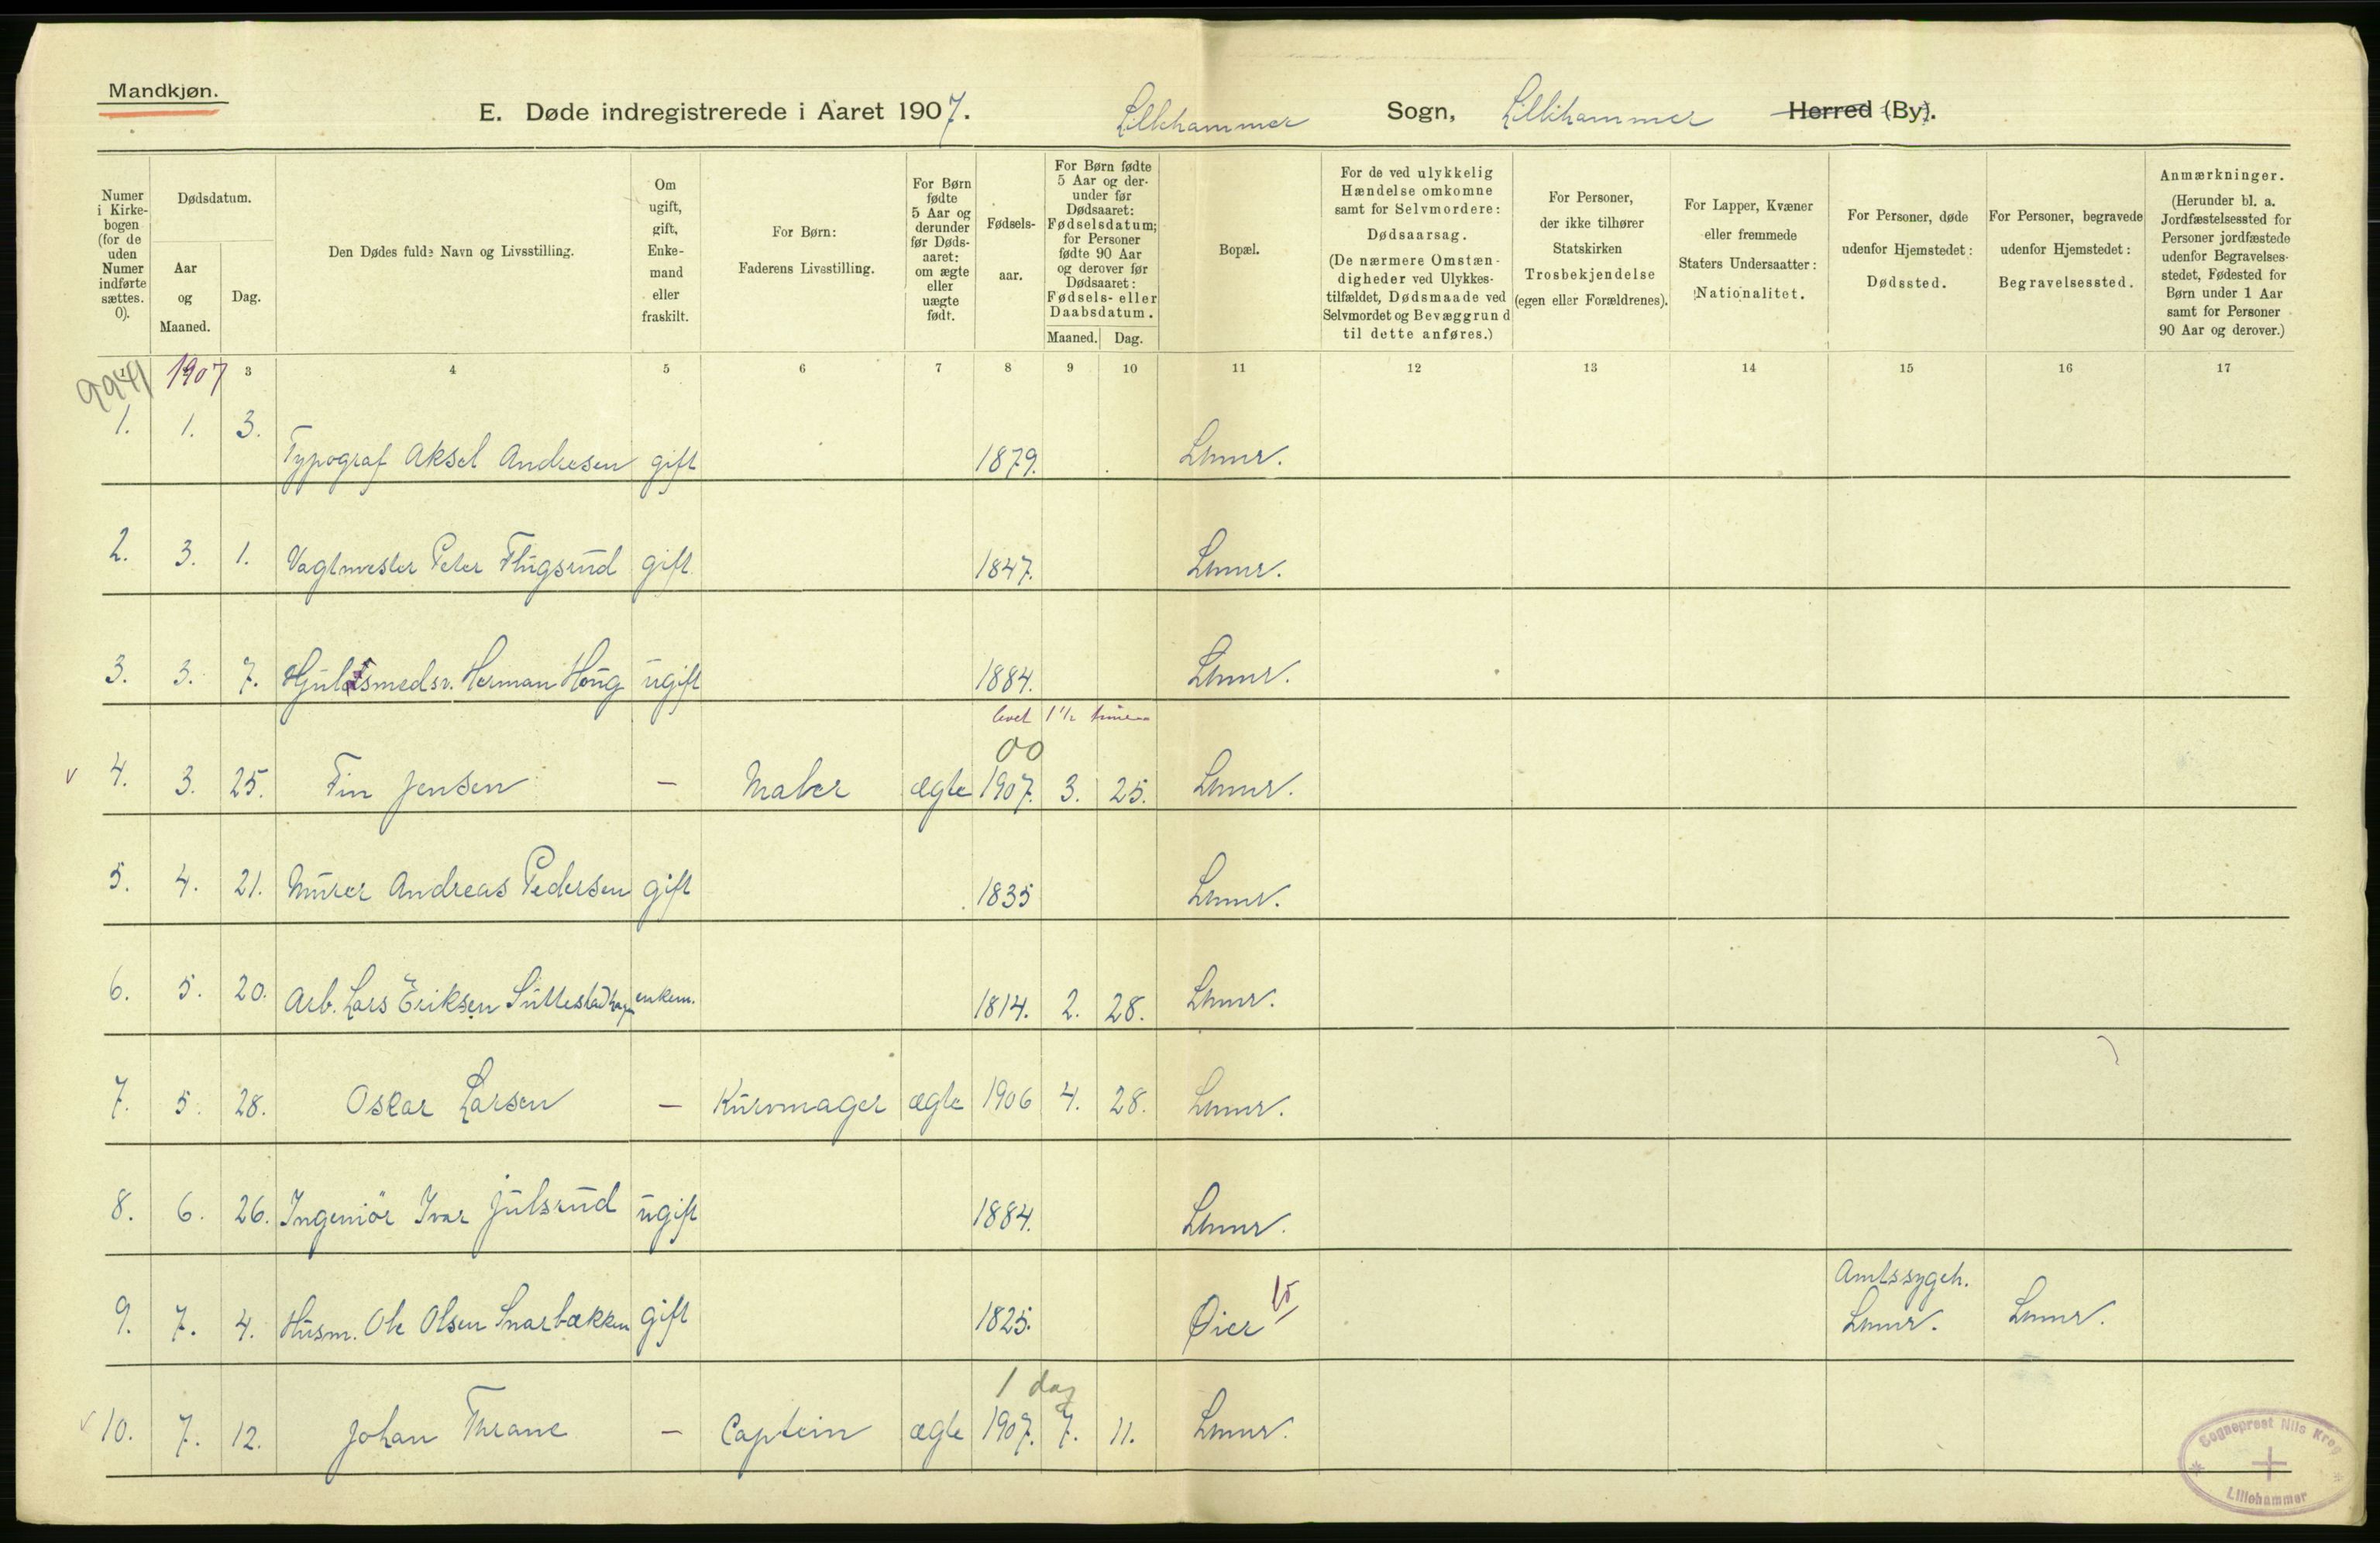 Mandkjøn.
E. Døde indregistrerede i Aaret 1907. Lillehammer Sogn, Lillehammer Herred (By).
Numer i Kirkebogen (for de uden Numer indførte sættes. 0).
Dødsdatum.
Aar og Maaned.
Dag.
Den Dødes fulde Navn og Livsstilling.
Om ugift, gift, Enkemand eller fraskilt.
For Børn: Faderens Livsstilling.
For Børn fødte 5 Aar og derunder før Dødsaaret: om ægte eller uægte født.
Fødselsaar.
For Børn fødte 5 Aar og derunder før Dødsaaret: Fødselsdatum; for Personer fødte 90 Aar og derover før Dødsaaret: Fødsels- eller Daabsdatum.
Maaned. Dag.
Bopæl.
For de ved ulykkelig Hændelse omkomne samt for Selvmordere: Dødsaarsag. (De nærmere Omstændigheder ved Ulykkestilfældet, Dødsmaade ved Selvmordet og Bevæggrund til dette anføres.)
For Personer, der ikke tilhører Statskirken Trosbekjendelse (egen eller Forældrenes).
For Lapper, Kvæner eller fremmede Staters Undersaatter: Nationalitet.
For Personer, døde udenfor Hjemstedet: Dødssted.
For Personer, begravede udenfor Hjemstedet: Begravelsessted.
Anmærkninger. (Herunder bl. a. Jordfæstelsessted for Personer jordfæstede udenfor Begravelsesstedet, Fødested for Børn under 1 Aar samt for Personer 90 Aar og derover.)
1907 3 4 5 6 7 8 9 10 11 12 13 14 15 16 17
1. 1. 3. Typograf Aksel Andresen gift 1879. Lhmr.
2. 3. 1. Vagtmester Peter Flugsrud gift 1847. Lhmr.
3. 3. 7. Herman Haug ugift 1884. Lhmr.
levet 1 1/2 time
00
4. 3. 25. Fin Jensen — Maler ægte 1907. 3. 25. Lhmr.
5. 4. 21. Murer Andreas Pedersen gift 1835 Lhmr.
6. 5. 20. Arb. Lars Eriksen enkem. 1814. 2. 28. Lhmr.
7. 5. 28. Oskar Larsen — Kurvmager ægte 1906 4. 28. Lhmr.
8. 6. 26. Ingeniör Ivar Julsrud ugift 1884. Lhmr.
Amtssygeh.
9. 7. 4. Husm. Ole Olsen Snarbækken gift 1825. Øier Lhmr. Lhmr.
1 dag
10. 7. 12. Johan Thrane — Captein ægte 1907. 7. 11. Lhmr.
Sogneprest Nils Krog
Lillehammer